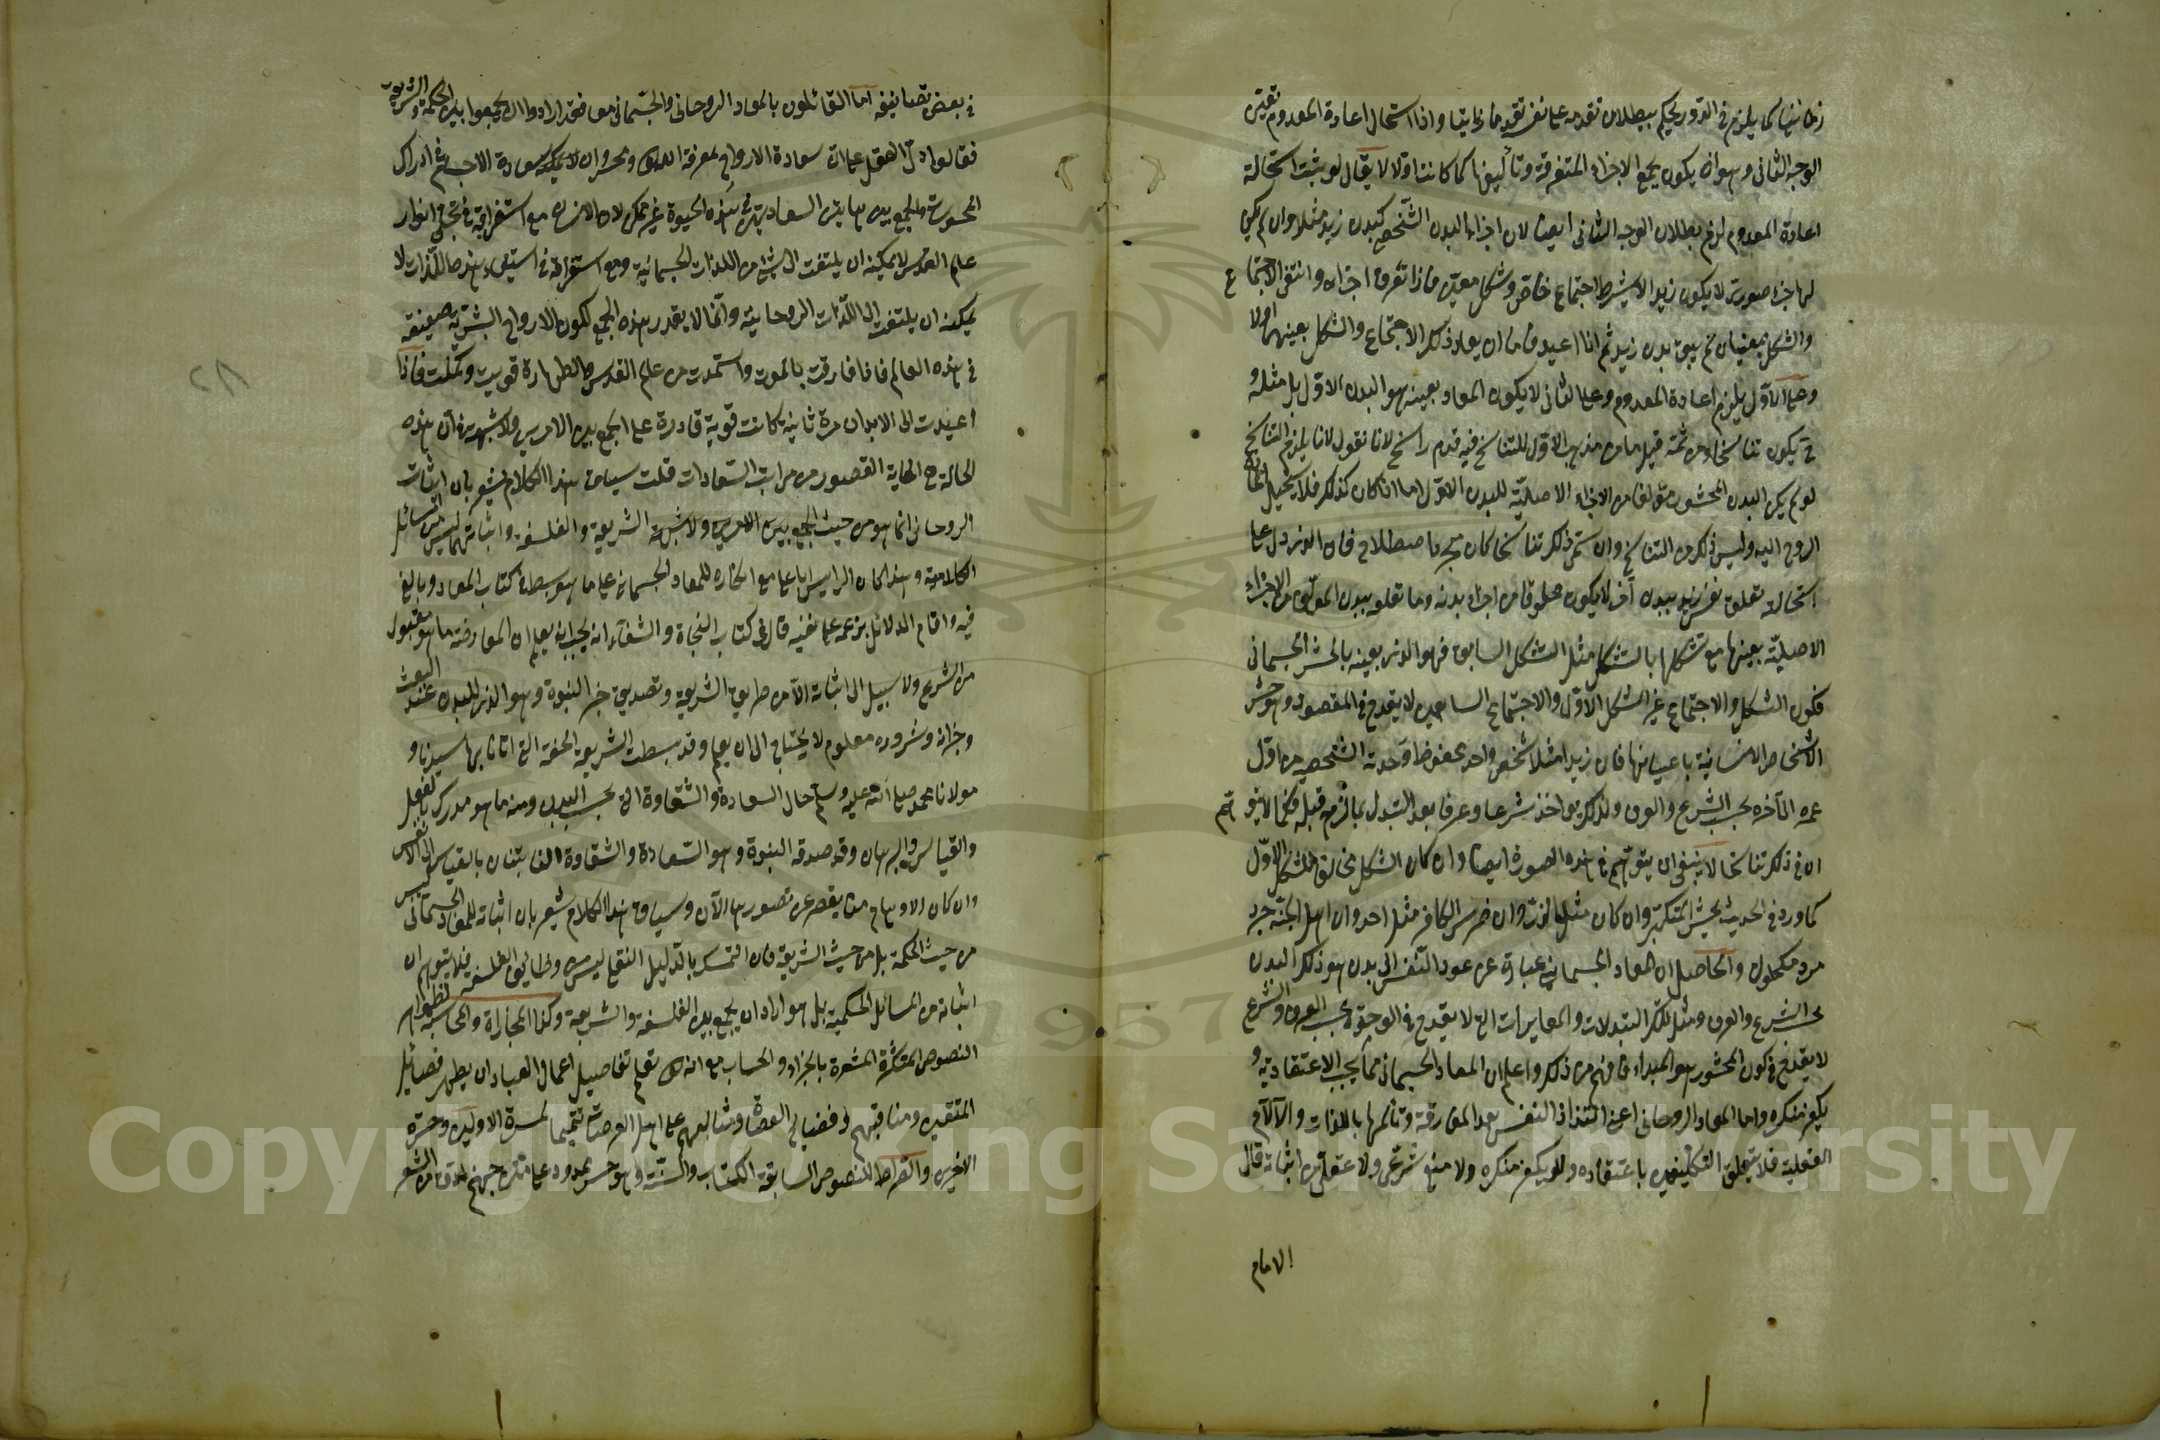 زمانيا كما يلزم في الدور يحكم ببطلان تقدمه على نفسه تقدما ذاتيا واذا استحال اعادة المعدوم تعين
الوجه الثاني وهو ان يكون بجمع الاجزاء المتفرقة وتأليفها كما كانت اولا لا يقال لو ثبت استحالة
اعادة المعدوم لزم بطلان الوجه الثاني ايضا لان اجزاء البدن الشخصي كبدن زيد مثلا وان لم يكن
لها جزء صوري لا يكون زيد الا بشرط اجتماع خاص وشكل معين فاذا تفرق اجزاءه وانتفى الاجتماع
والشكل المعينان لم يبق بدن زيد ثم اذا اعيد فاما ان يعاد ذلك الاجتماع والشكل بعينهما اولا
وعلى الاول يلزم اعادة المعدوم وعلى الثاني لا يكون المعاد بعينه هو البدن الاول بل مثله و
ح يكون تناسخا ومن ثمة قيل ما من مذهب الا وللتناسخ فيه قدم راسخ لانا نقول انما يلزم التناسخ
لو لم يكن البدن المحشور مؤلفا من الاجزاء الاصلية للبدن الاول اما اذا كان كذلك فلا يستحيل اعادة
الروح اليه وليس ذلك من التناسخ وان سمي ذلك تناسخا كان مجرد اصطلاح فان الذي دل على
استحالة تعلق نفس زيد ببدن آخر لا يكون مخلوقا من اجزاء بدنه واما تعلقه ببدن المؤلف من الاجزاء
الاصلية بعينها مع تشكلها بالشكل مثل الشكل السابق فهو الذي نعنيه بالحشر الجسماني
فكون الشكل والاجتماع غير الشكل الاول والاجتماع السابق لا يقدح في المقصود وهو حشر
الاشخاص الانسانية باعيانها فان زيدا مثلا شخص واحد محفوظ وحدته الشخصية من اول
عمره الى آخره بحسب الشرع والعرف ولذلك يؤاخذ شرعا وعرفا بعد التبدل بما لزمه قبله فكما لا يتوهم
ان في ذلك تناسخا لا ينبغي ان يتوهم في هذه الصورة ايضا وان كان الشكل مخالفا للشكل الاول
كما ورد في الحديث يحشر المتكبرون كامثال الذر وان ضرس الكافر مثل احد وان اهل الجنة جرد
مرد مكحلون والحاصل ان المعاد الجسماني عبارة عن عود النفس الى بدن هو ذلك البدن
بحسب الشرع والعرف ومثل تلك التبدلات والمغايرات التي لا يقدح في الوحدة بحسب العرف والشرع
لا يقدح في كون المحشور هو المبدأ فافهم من ذلك واعلم ان المعاد الجسماني مما يجب الاعتقاد به و
يكفر منكره واما المعاد الروحاني اعني التذاذ النفس بعد المفارقة وتألمها باللذات والآلام
العقلية فلا يتعلق التكليف باعتقاده ولا يكفر منكره ولا منع شرعي ولا عقلي من اثباته قال
الامام
في بعض تصانيفه اما القائلون بالمعاد الروحاني والجسماني معا فقد ارادوا ان يجمعوا بين الحكمة والشريعة
فقالوا دل العقل على ان سعادة الارواح بمعرفة الله تعالى ومحبته وان سعادة الاجساد في ادراك
المحسوسات والجمع بين هاتين السعادتين في هذه الحيوة غير ممكن لان الانسان مع استغراقه في تجلي انوار
عالم القدس لا يمكنه ان يلتفت الى شيء من اللذات الجسمانية ومع استغراقه في استيفاء هذه اللذات لا
يمكنه ان يلتفت الى اللذات الروحانية وانما لا يقدر هذه الجمع لكون الارواح البشرية ضعيفة
في هذه العالم فاذا فارقت بالموت واستمدت من عالم القدس والطهارة قويت وكملت فاذا
اعيدت الى الابدان مرة ثانية كانت قوية قادرة على الجمع بين الامرين ولا شبهة في ان هذه
الحالة هي الغاية القصوى من مراتب السعادات قلت سياق هذا الكلام مشعر بان اثبات
الروحاني انما هو من حيث الجمع بين الشريعة والفلسفة واثباتهما ليس من المسائل
الكلامية وهذا كما ان الرئيس ابا علي مع انكاره للمعاد الجسماني على ما هو بسطه في كتاب المعاد وبالغ
فيه واقام الدلائل بزعمه على نفيه قال في كتاب النجاة والشفاء انه يجب ان يعلم ان المعاد منه ما هو مقبول
من الشرع ولا سبيل الى اثباته الا من طريق الشريعة وتصديق خبر النبوة وهو الذي للبدن عند البعث
وخيراته وشروره معلوم لا يحتاج الى ان يعلم وقد بسطت الشريعة الحقة التي اتانا بها سيدنا و
مولانا محمد صلى الله عليه وسلم حال السعادة والشقاوة التي بحسب البدن ومنه ما هو مدرك بالعقل
والقياس البرهاني وقد صدقه النبوة وهو السعادة والشقاوة الثابتتان بالقياس الى الانفس
وان كان الاوهام منا يقصر عن تصورها الآن وسياق هذا الكلام مشعر بان اثباته للمعاد الجسماني ليس
من حيث الحكمة بل من حيث الشريعة فان التمسك بالدليل النقلي ليس من وظائف الفلسفة فلا يتوهم ان
اثباته من المسائل الحكمية بل هو اراد ان يجمع بين الفلسفة والشريعة وكذا المجازاة والمحاسبة لظواهر
النصوص المتكثرة المشعرة بالجزاء والحساب مع انه تعالى يعلم تفاصيل اعمال العباد ان يظهر فضائل
المتقين ومناقبهم وفضائح العصاة ومثالبهم على اهل العرصات تتميما لمسرة الاولين وحسرة
الاخيرين والصراط للنصوص السابقة الكتاب والسنة وهو جسر ممدود على متن جهنم ادق من الشعر
٢٨
Copyright © King Saud University
1957